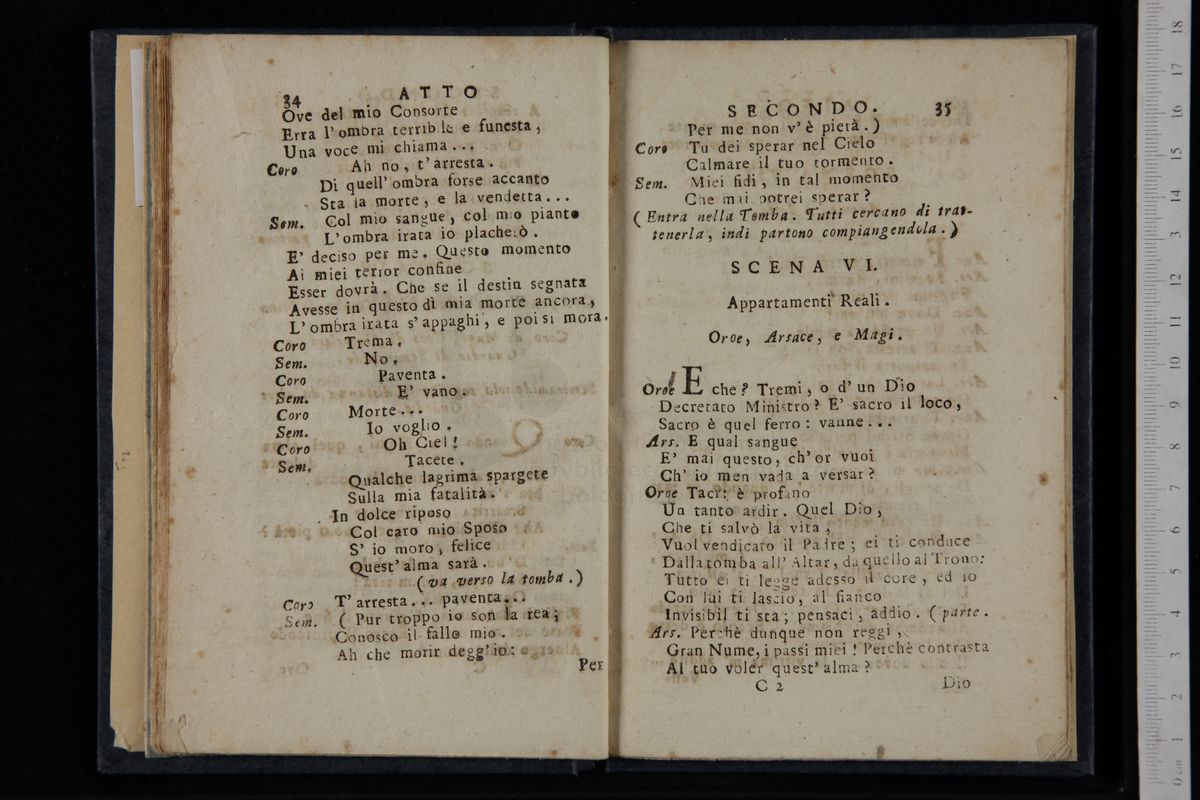 34 ATTO
Ove del mio Consorte
Erra l'ombra terribile e funesta,
Una voce mi chiama...
Coro Ah no, t'arresta.
Di quell'ombra forse accanto
Sta la morte, e la vendetta...
Sem. Col mio sangue, col mio pianto
L'ombra irata io placherò.
E' deciso per me. Questo momento
Ai miei terror confine
Esser dovrà. Che se il destin segnata
Avesse in questo dì mia morte ancora,
L'ombra irata s'appaghi, e poi si mora.
Coro Trema.
Sem. No.
Coro Paventa.
Sem. E' vano.
Coro Morte...
Sem. Io voglio.
Coro Oh Ciel!
Sem. Tacete.
Qualche lagrima spargete
Sulla mia fatalità.
In dolce riposo
Col caro mio Sposo
S' io moro, felice
Quest'alma sarà.
(va verso la tomba.)
Coro T'arresta... paventa...
Sem. ( Pur troppo io son la rea;
Conosco il fallo mio.
Ah che morir degg'io:
Per
SECONDO. 35
Per me non v'è pietà.)
Coro Tu dei sperar nel Cielo
Calmare il tuo tormento.
Sem. Miei fidi, in tal momento
Che mai potrei sperar?
(Entra nella Tomba. Tutti cercano di trat-
tenerla, indi partono compiangendola.)
SCENA VI.
Appartamenti Reali.
Oroe, Arsace, e Magi.
Oroe E che? Tremi, o d'un Dio
Decretato Ministro? E' sacro il loco,
Sacro è quel ferro: vanne...
Ars. E qual sangue
E' mai questo, ch'or vuoi
Ch' io men vada a versar?
Oroe Taci: è profano
Un tanto ardir. Quel Dio,
Che ti salvò la vita,
Vuol vendicato il Padre; ei ti conduce
Dalla tomba all'Altar, da quello al Trono:
Tutto ei ti legge adesso il core, ed io
Con lui ti lascio, al fianco
Invisibil ti sta; pensaci, addio. (parte.
Ars. Perchè dunque non reggi,
Gran Nume, i passi miei! Perchè contrasta
Al tuo voler quest'alma?
C 2 Dio